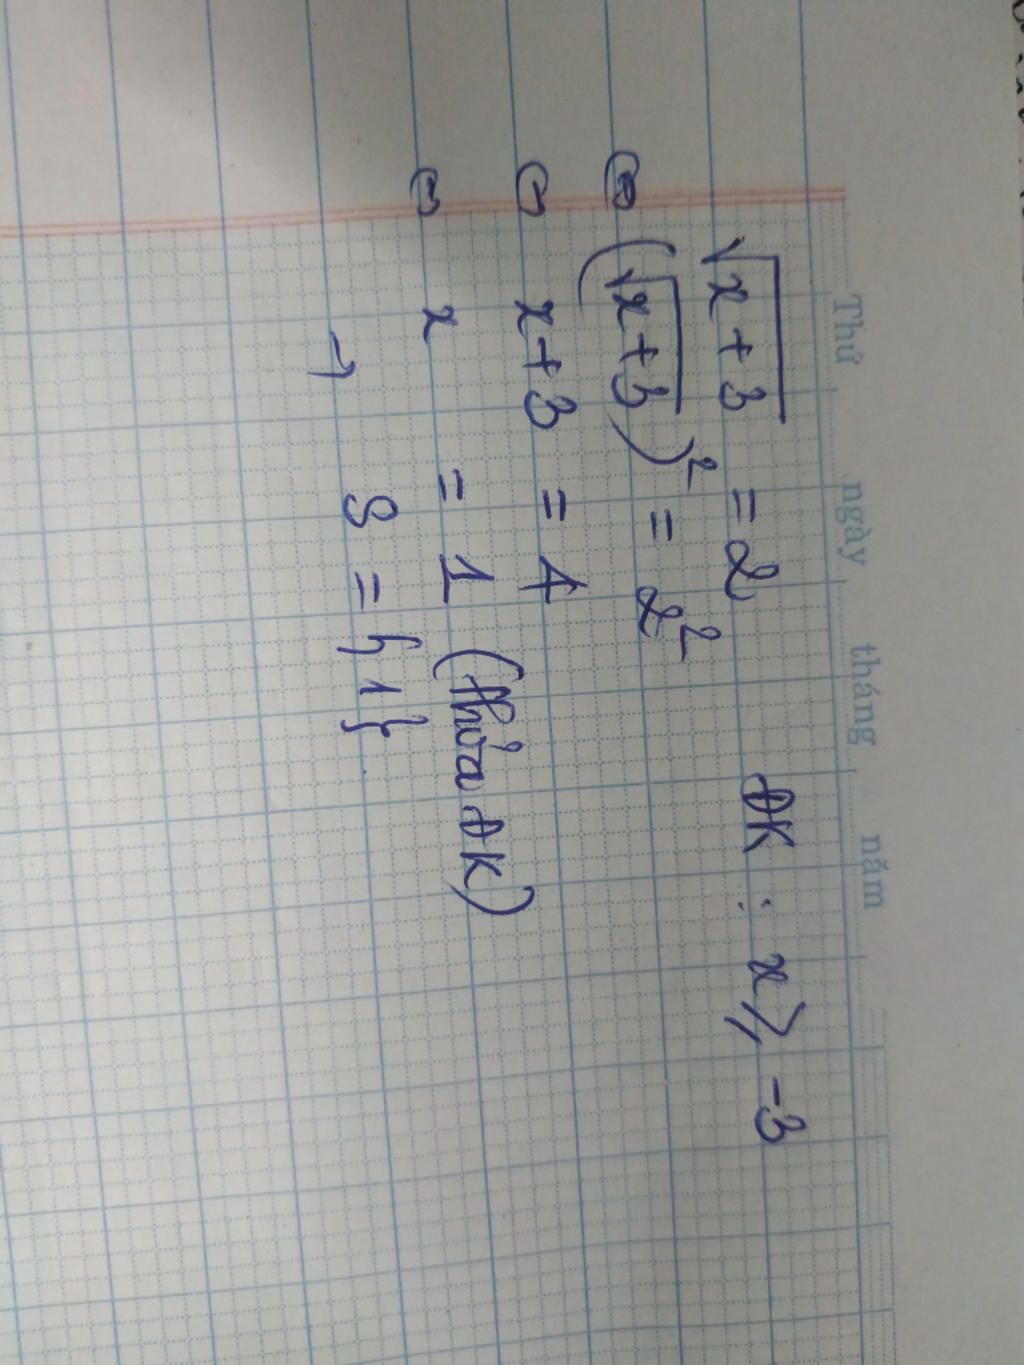 Thứ ngày tháng năm
√(x+3) = 2 ĐK : x ⩾ -3
⇔ (√(x+3))² = 2²
⇔ x+3 = 4
⇔ x = 1 (thỏa ĐK)
→ S = {1}